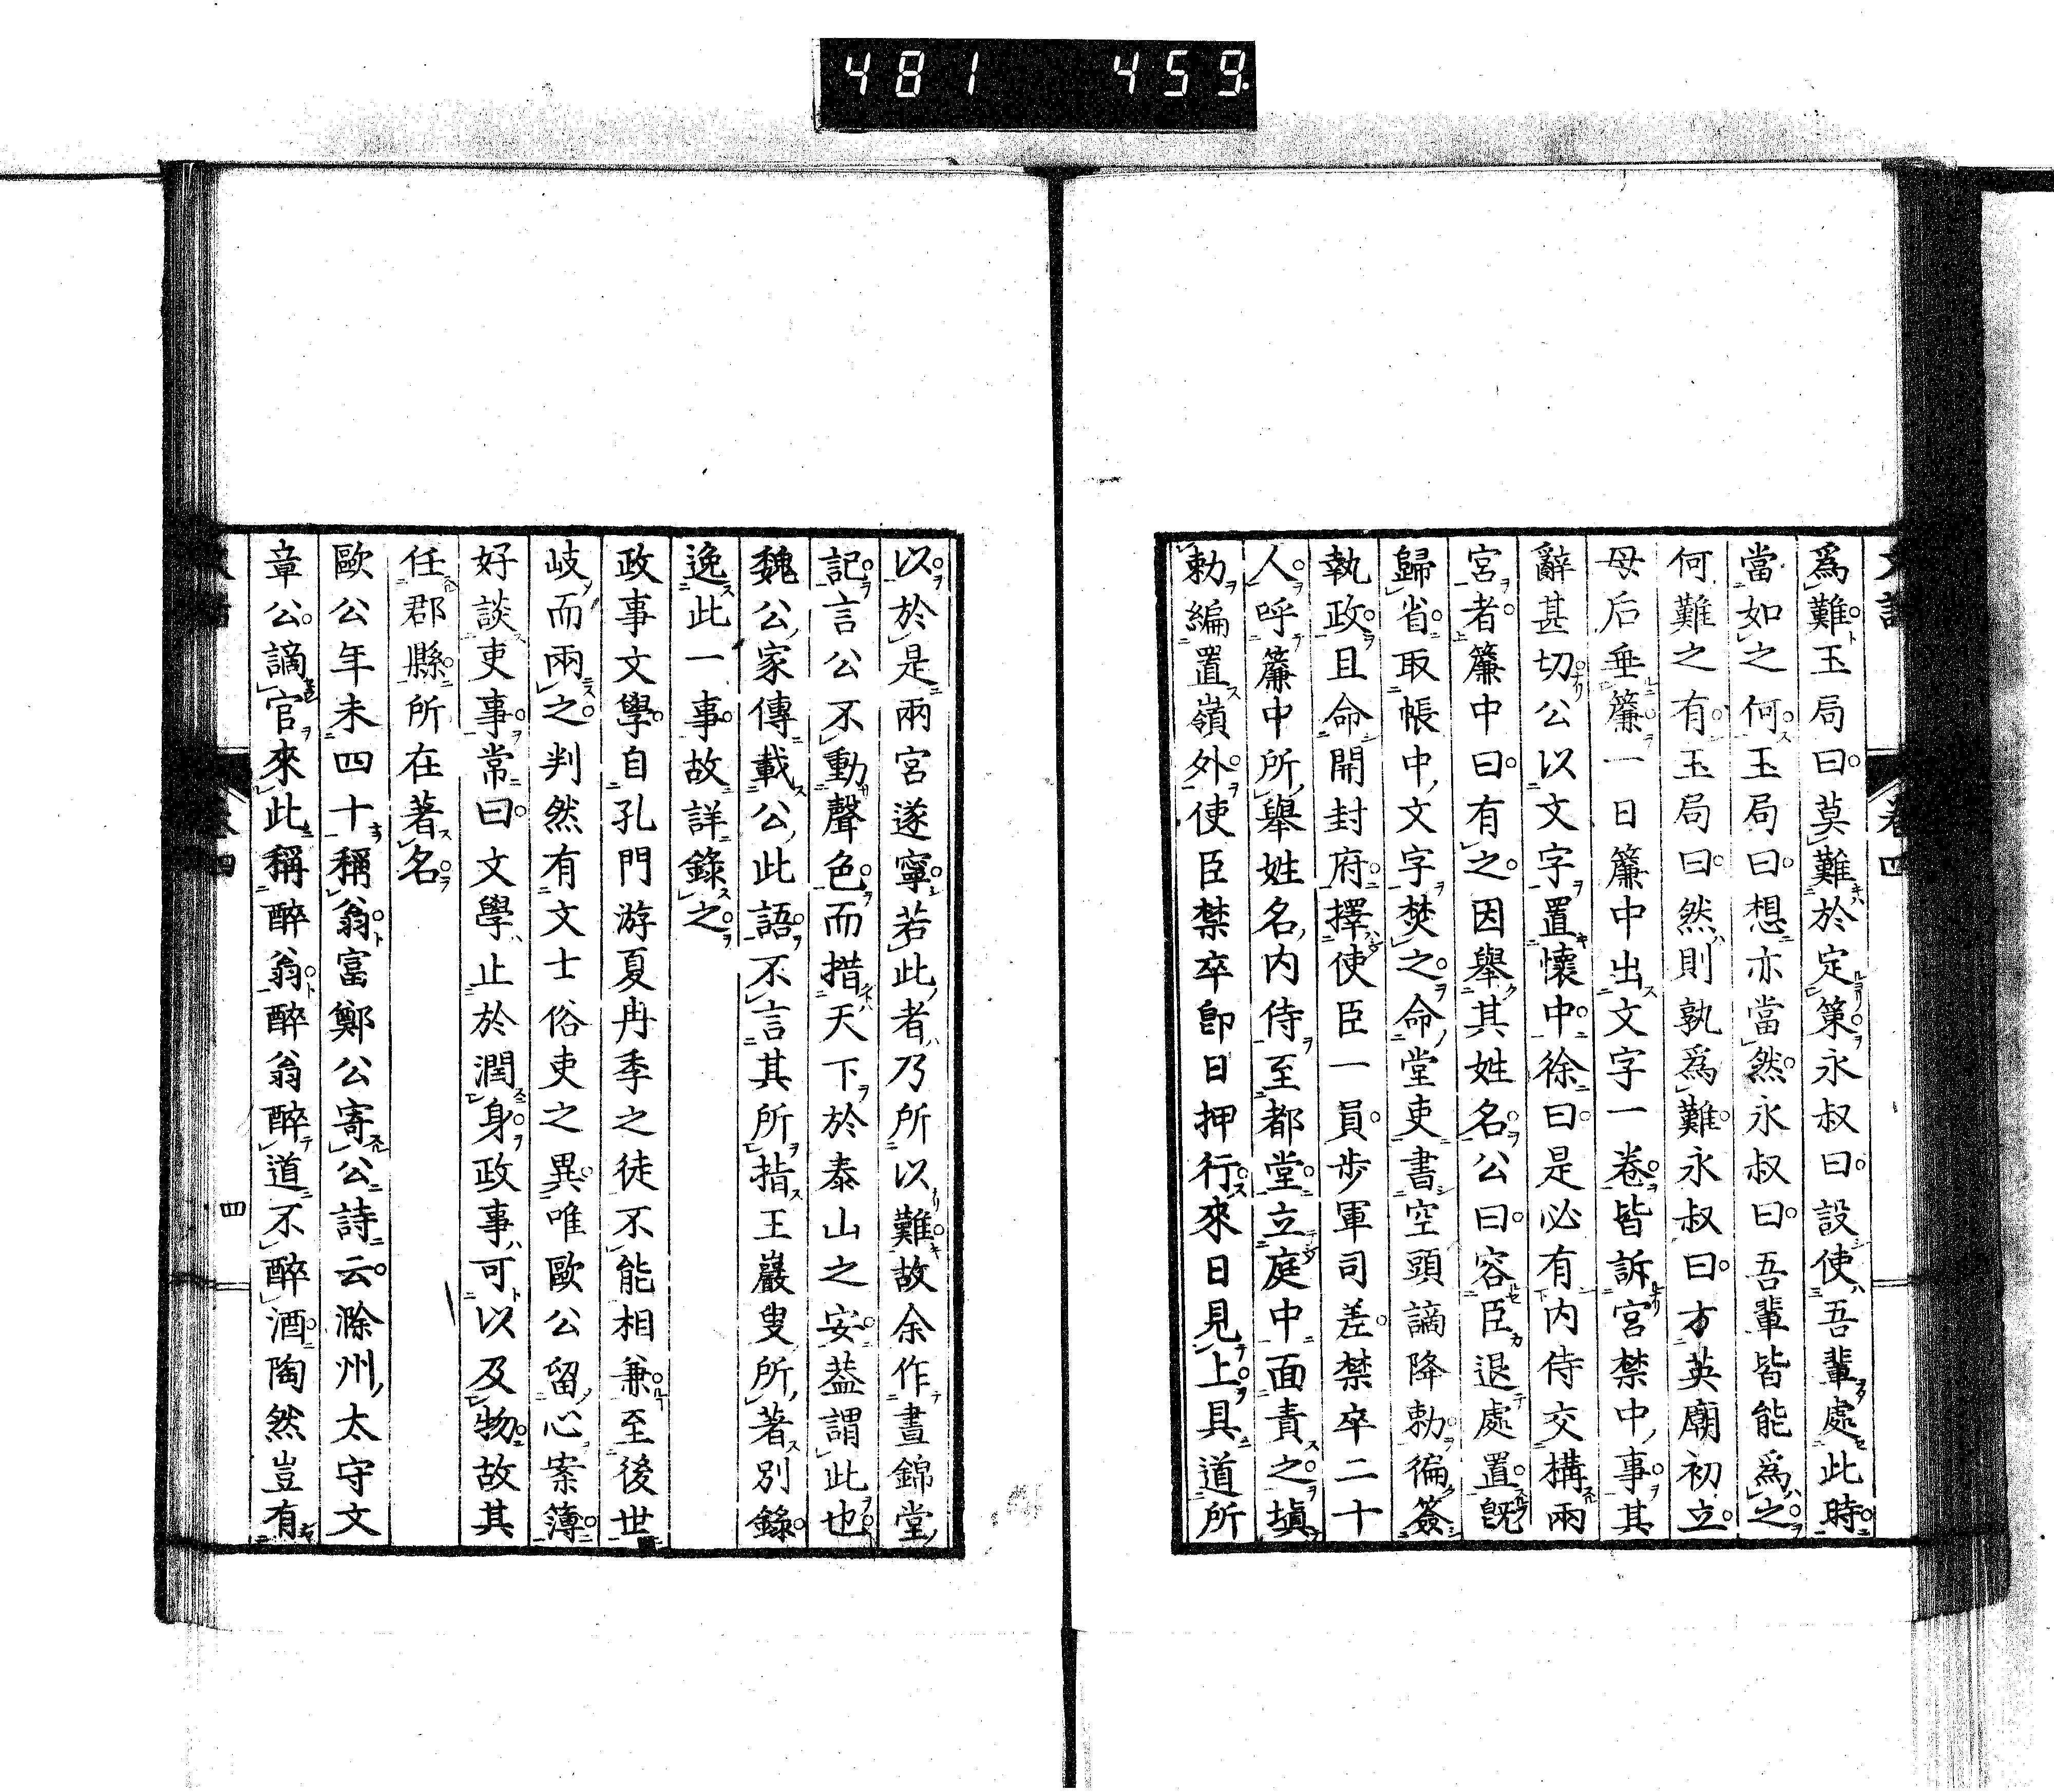 481 459
爲難玉局曰莫難於定策永叔曰設使吾輩處此時
當如之何玉局曰想亦當然永叔曰吾輩皆能爲之
何難之有玉局曰然則孰爲難永叔曰方英廟初立
母后垂簾一日簾中出文字一卷皆訴宮禁中事其
辭甚切公以文字置懷中徐曰是必有内侍交構兩
宮者簾中曰有之因舉其姓名公曰容臣退處置旣
歸省取帳中文字焚之命堂吏書空頭謫降勅徧簽
執政且命開封府擇使臣一員步軍司差禁卒二十
人呼簾中所舉姓名内侍至都堂立庭中面責之塡
勅編置嶺外使臣禁卒卽日押行來日見上具道所
以於是兩宮遂寧若此者乃所以難故余作晝錦堂
記言公不動聲色而措天下於泰山之安葢謂此也
魏公家傳載公此語不言其所指王巖叟所著別錄
逸此一事故詳錄之
政事文學自孔門游夏冉季之徒不能相兼至後世
岐而兩之判然有文士俗吏之異唯歐公留心案簿
好談吏事常曰文學止於潤身政事可以及物故其
任郡縣所在著名
歐公年未四十稱翁富鄭公寄公詩云滁州太守文
章公謫官來此稱醉翁醉翁醉道不醉酒陶然豈有
四